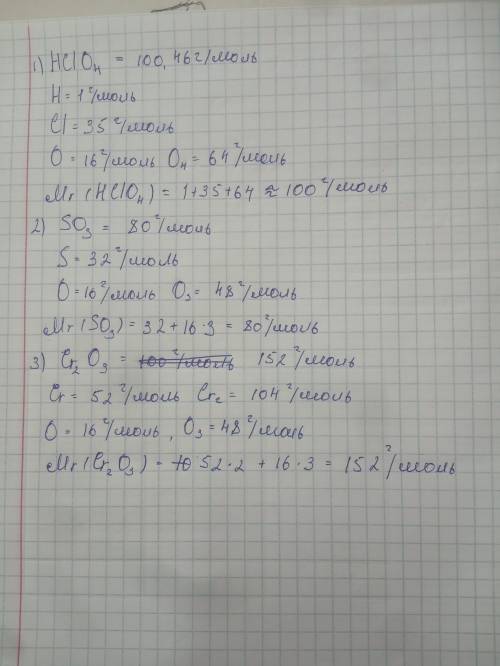 1) HClO4 = 100,46 г/моль
H = 1 г/моль
Cl = 35 г/моль
O = 16 г/моль O4 = 64 г/моль
Mr (HClO4) = 1+35+64 ≈ 100 г/моль
2) SO3 = 80 г/моль
S = 32 г/моль
O = 16 г/моль O3 = 48 г/моль
Mr (SO3) = 32 + 16·3 = 80 г/моль
3) Cr2O3 = 100 г/моль 152 г/моль
Cr = 52 г/моль Cr2 = 104 г/моль
O = 16 г/моль, O3 = 48 г/моль
Mr (Cr2O3) = 10 52·2 + 16·3 = 152 г/моль